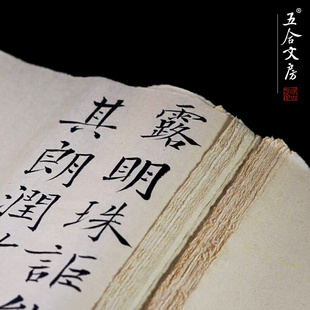 五合文房®
露明珠詎
其朗潤